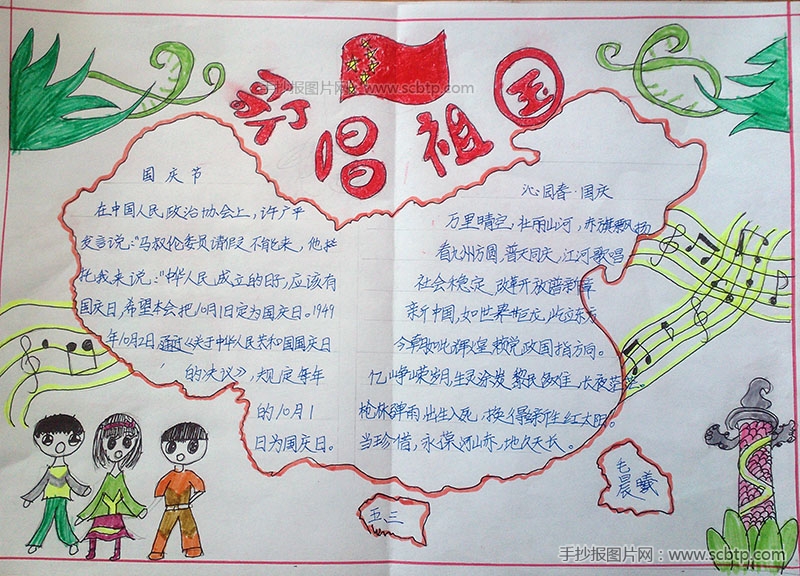 手抄报图片网：www.scbtp.com
歌唱祖国
国庆节
在中国人民政治协会上，许广平
发言说："马叙伦委员请假不能来，他托
托我来说："中华人民成立的日子，应该有
国庆日，希望本会把10月1日定为国庆日。1949
年10月2日，通过《关于中华人民共和国国庆日
的决议》，规定每年
的10月1
日为国庆日。
沁园春·国庆
万里晴空，壮丽山河，赤旗飘扬
看九州方圆，普天同庆，江河歌唱
社会稳定，改革开放谱新章
新中国，如世界巨龙，屹立东方
今朝如此辉煌，赖党政国指方向。
忆峥嵘岁月，生灵涂炭，黎民
长夜
枪林弹雨，出生入死，换得
红太阳。
当珍惜，永葆河山赤，地久天长。
五三
毛
晨曦
手抄报图片网：www.scbtp.com